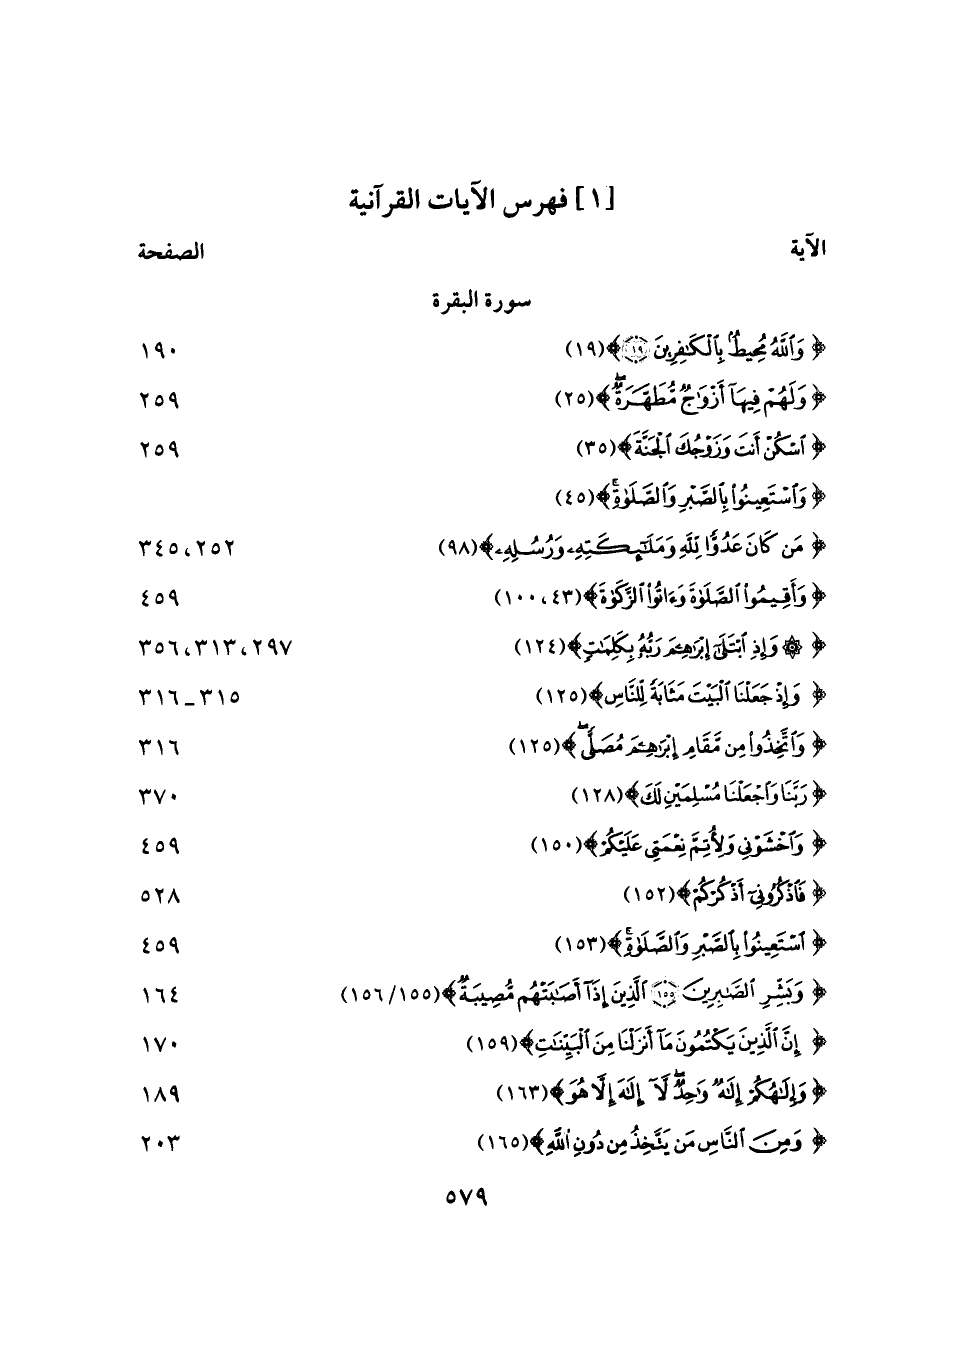 [١] فهرس الآيات القرآنية
الآية الصفحة
سورة البقرة
﴿ وَٱللَّهُ مُحِيطٌۢ بِٱلْكَٰفِرِينَ ١٩﴾ (١٩) ١٩٠
﴿ وَلَهُمْ فِيهَآ أَزْوَٰجٌ مُّطَهَّرَةٌۖ﴾ (٢٥) ٢٥٩
﴿ ٱسْكُنْ أَنتَ وَزَوْجُكَ ٱلْجَنَّةَ﴾ (٣٥) ٢٥٩
﴿ وَٱسْتَعِينُوا۟ بِٱلصَّبْرِ وَٱلصَّلَوٰةِۚ﴾ (٤٥)
﴿ مَن كَانَ عَدُوًّا لِّلَّهِ وَمَلَٰٓئِكَتِهِۦ وَرُسُلِهِۦ﴾ (٩٨) ٢٥٢، ٣٤٥
﴿ وَأَقِيمُوا۟ ٱلصَّلَوٰةَ وَءَاتُوا۟ ٱلزَّكَوٰةَ﴾ (٤٣، ١٠٠) ٤٥٩
﴿ ۞ وَإِذِ ٱبْتَلَىٰٓ إِبْرَٰهِـۧمَ رَبُّهُۥ بِكَلِمَٰتٍ﴾ (١٢٤) ٢٩٧، ٣١٣، ٣٥٦
﴿ وَإِذْ جَعَلْنَا ٱلْبَيْتَ مَثَابَةً لِّلنَّاسِ﴾ (١٢٥) ٣١٥ ـ ٣١٦
﴿ وَٱتَّخِذُوا۟ مِن مَّقَامِ إِبْرَٰهِـۧمَ مُصَلًّىۖ﴾ (١٢٥) ٣١٦
﴿ رَبَّنَا وَٱجْعَلْنَا مُسْلِمَيْنِ لَكَ﴾ (١٢٨) ٣٧٠
﴿ وَٱخْشَوْنِى وَلِأُتِمَّ نِعْمَتِى عَلَيْكُمْ﴾ (١٥٠) ٤٥٩
﴿ فَٱذْكُرُونِىٓ أَذْكُرْكُمْ﴾ (١٥٢) ٥٢٨
﴿ ٱسْتَعِينُوا۟ بِٱلصَّبْرِ وَٱلصَّلَوٰةِۚ﴾ (١٥٣) ٤٥٩
﴿ وَبَشِّرِ ٱلصَّٰبِرِينَ ١٥٥ ٱلَّذِينَ إِذَآ أَصَٰبَتْهُم مُّصِيبَةٌ﴾ (١٥٥/ ١٥٦) ١٦٤
﴿ إِنَّ ٱلَّذِينَ يَكْتُمُونَ مَآ أَنزَلْنَا مِنَ ٱلْبَيِّنَٰتِ﴾ (١٥٩) ١٧٠
﴿ وَإِلَٰهُكُمْ إِلَٰهٌ وَٰحِدٌۖ لَّآ إِلَٰهَ إِلَّا هُوَ﴾ (١٦٣) ١٨٩
﴿ وَمِنَ ٱلنَّاسِ مَن يَتَّخِذُ مِن دُونِ ٱللَّهِ﴾ (١٦٥) ٢٠٣
٥٧٩